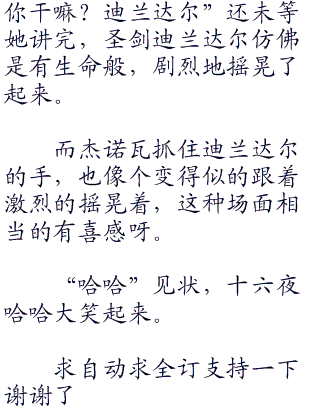 你干嘛？迪兰达尔”还未等
她讲完，圣剑迪兰达尔仿佛
是有生命般，剧烈地摇晃了
起来。
而杰诺瓦抓住迪兰达尔
的手，也像个变得似的跟着
激烈的摇晃着，这种场面相
当的有喜感呀。
“哈哈”见状，十六夜
哈哈大笑起来。
求自动求全订支持一下
谢谢了